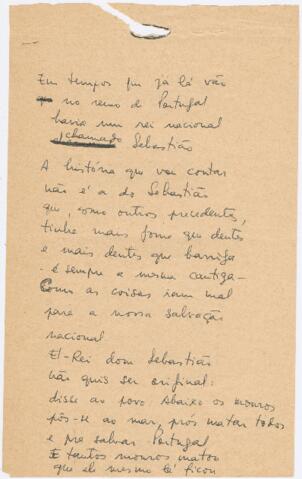 Em tempos que já lá vão
no reino de Portugal
havia um rei nacional
chamado Sebastião
A história que vou contar
não é a do Sebastião
que, como outros precedentes,
tinha mais fome que dentes
e mais dentes que barriga
- é sempre a mesma cantiga -
Como as coisas iam mal
para a nossa salvação
nacional
El-Rei dom Sebastião
não quis ser original:
disse ao povo: Abaixo os mouros
pôs-se ao mar, prós matar todos
e pra salvar Portugal
E tantos mouros matou
que ele mesmo lá ficou